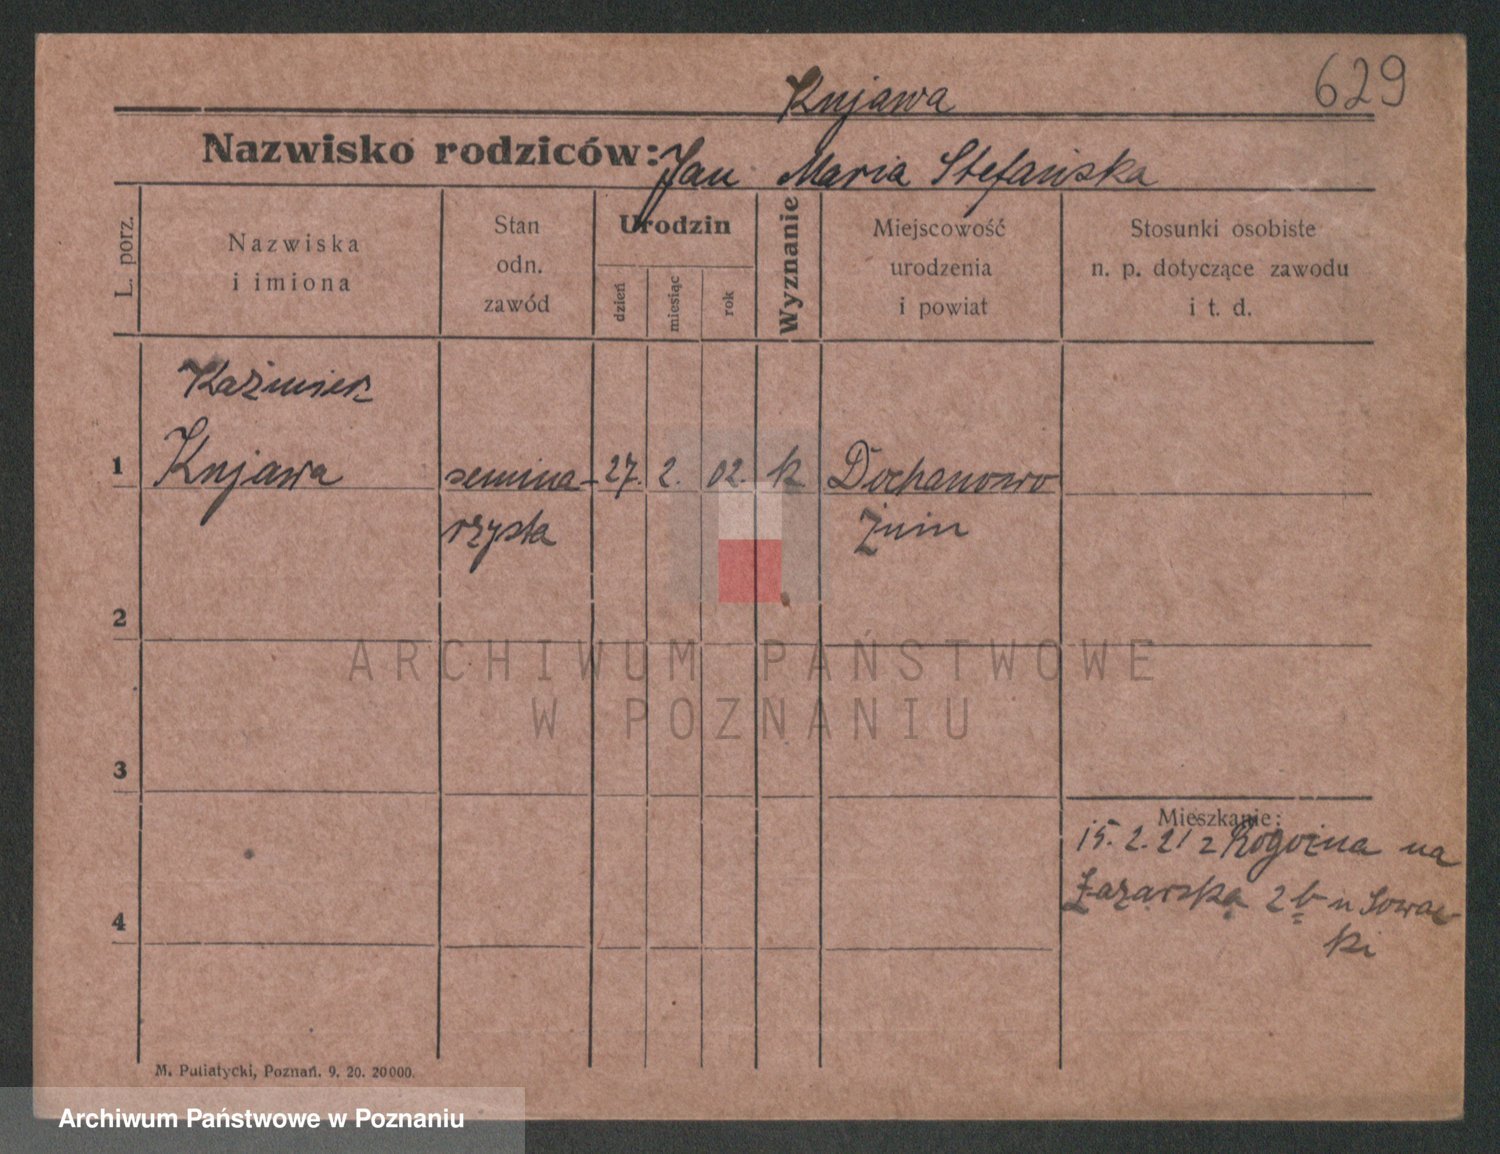 629
Kujawa
Nazwisko rodziców: Jan Maria Stefańska
L. porz.
Nazwiska
i imiona
Stan
odn.
zawód
Urodzin
dzień
miesiąc
rok
Wyznanie
Miejscowość
urodzenia
i powiat
Stosunki osobiste
n. p. dotyczące zawodu
i t. d.
Kaźmierz
1 Kujawa semina- 27. 2. 02. k Dochanowo
rzysta Żnin
2
3
4
Mieszkanie:
15. 2. 21 z Rogoźna na
Łazarska 2b u Sowac
ki
M. Putiatycki, Poznań. 9. 20. 20000.
ARCHIWUM PAŃSTWOWE
W POZNANIU
Archiwum Państwowe w Poznaniu